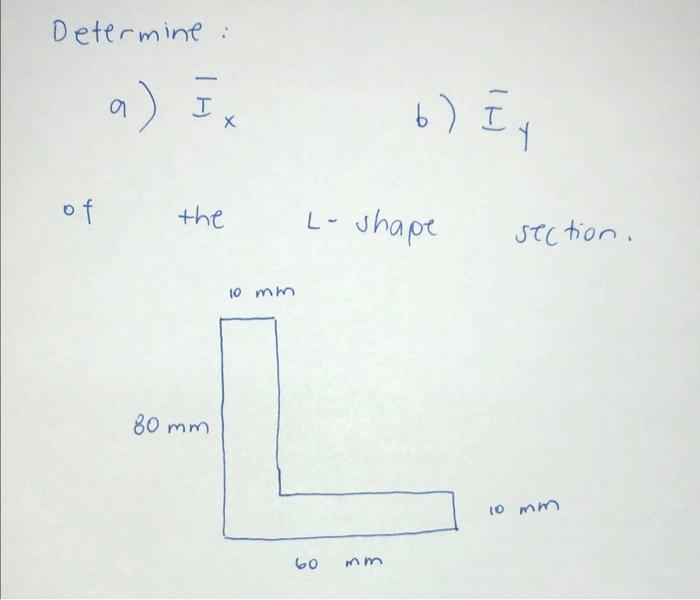 Determine :
a) Īx b) Īy
of the L-shape section.
10 mm
80 mm
10 mm
60 mm